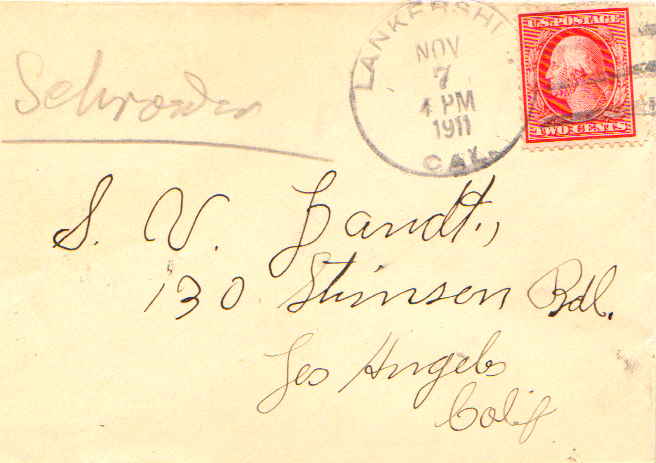 LANKERSHI
NOV
7
4 PM
1911
CAL.
U.S. POSTAGE
TWO CENTS
Schroeder
S. V. Landt,
130 Stimson Bdl.
Los Angels
Calif